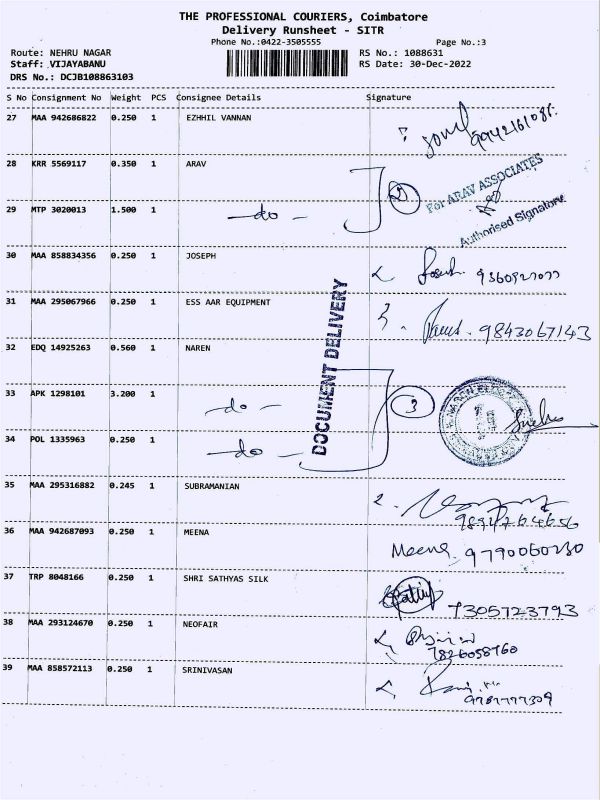 THE PROFESSIONAL COURIERS, Coimbatore
Delivery Runsheet - SITR
Phone No.:0422-3505555 Page No.:3
Route: NEHRU NAGAR RS No.: 1088631
Staff: VIJAYABANU RS Date: 30-Dec-2022
DRS No.: DCJB108863103
S No Consignment No Weight PCS Consignee Details Signature
27 MAA 942686822 0.250 1 EZHHIL VANNAN
28 KRR 5569117 0.350 1 ARAV 2 For ARAV ASSOCIATES
29 MTP 3020013 1.500 1 -do- Authorised Signatory
30 MAA 858834356 0.250 1 JOSEPH Joseph
31 MAA 295067966 0.250 1 ESS AAR EQUIPMENT 9843067143
DOCUMENT DELIVERY
32 EDQ 14925263 0.560 1 NAREN
33 APK 1298101 3.200 1 -do- 3
34 POL 1335963 0.250 1 -do-
35 MAA 295316882 0.245 1 SUBRAMANIAN
36 MAA 942687093 0.250 1 MEENA Meena 9790060230
37 TRP 8048166 0.250 1 SHRI SATHYAS SILK 7305723793
38 MAA 293124670 0.250 1 NEOFAIR 7826058760
39 MAA 858572113 0.250 1 SRINIVASAN